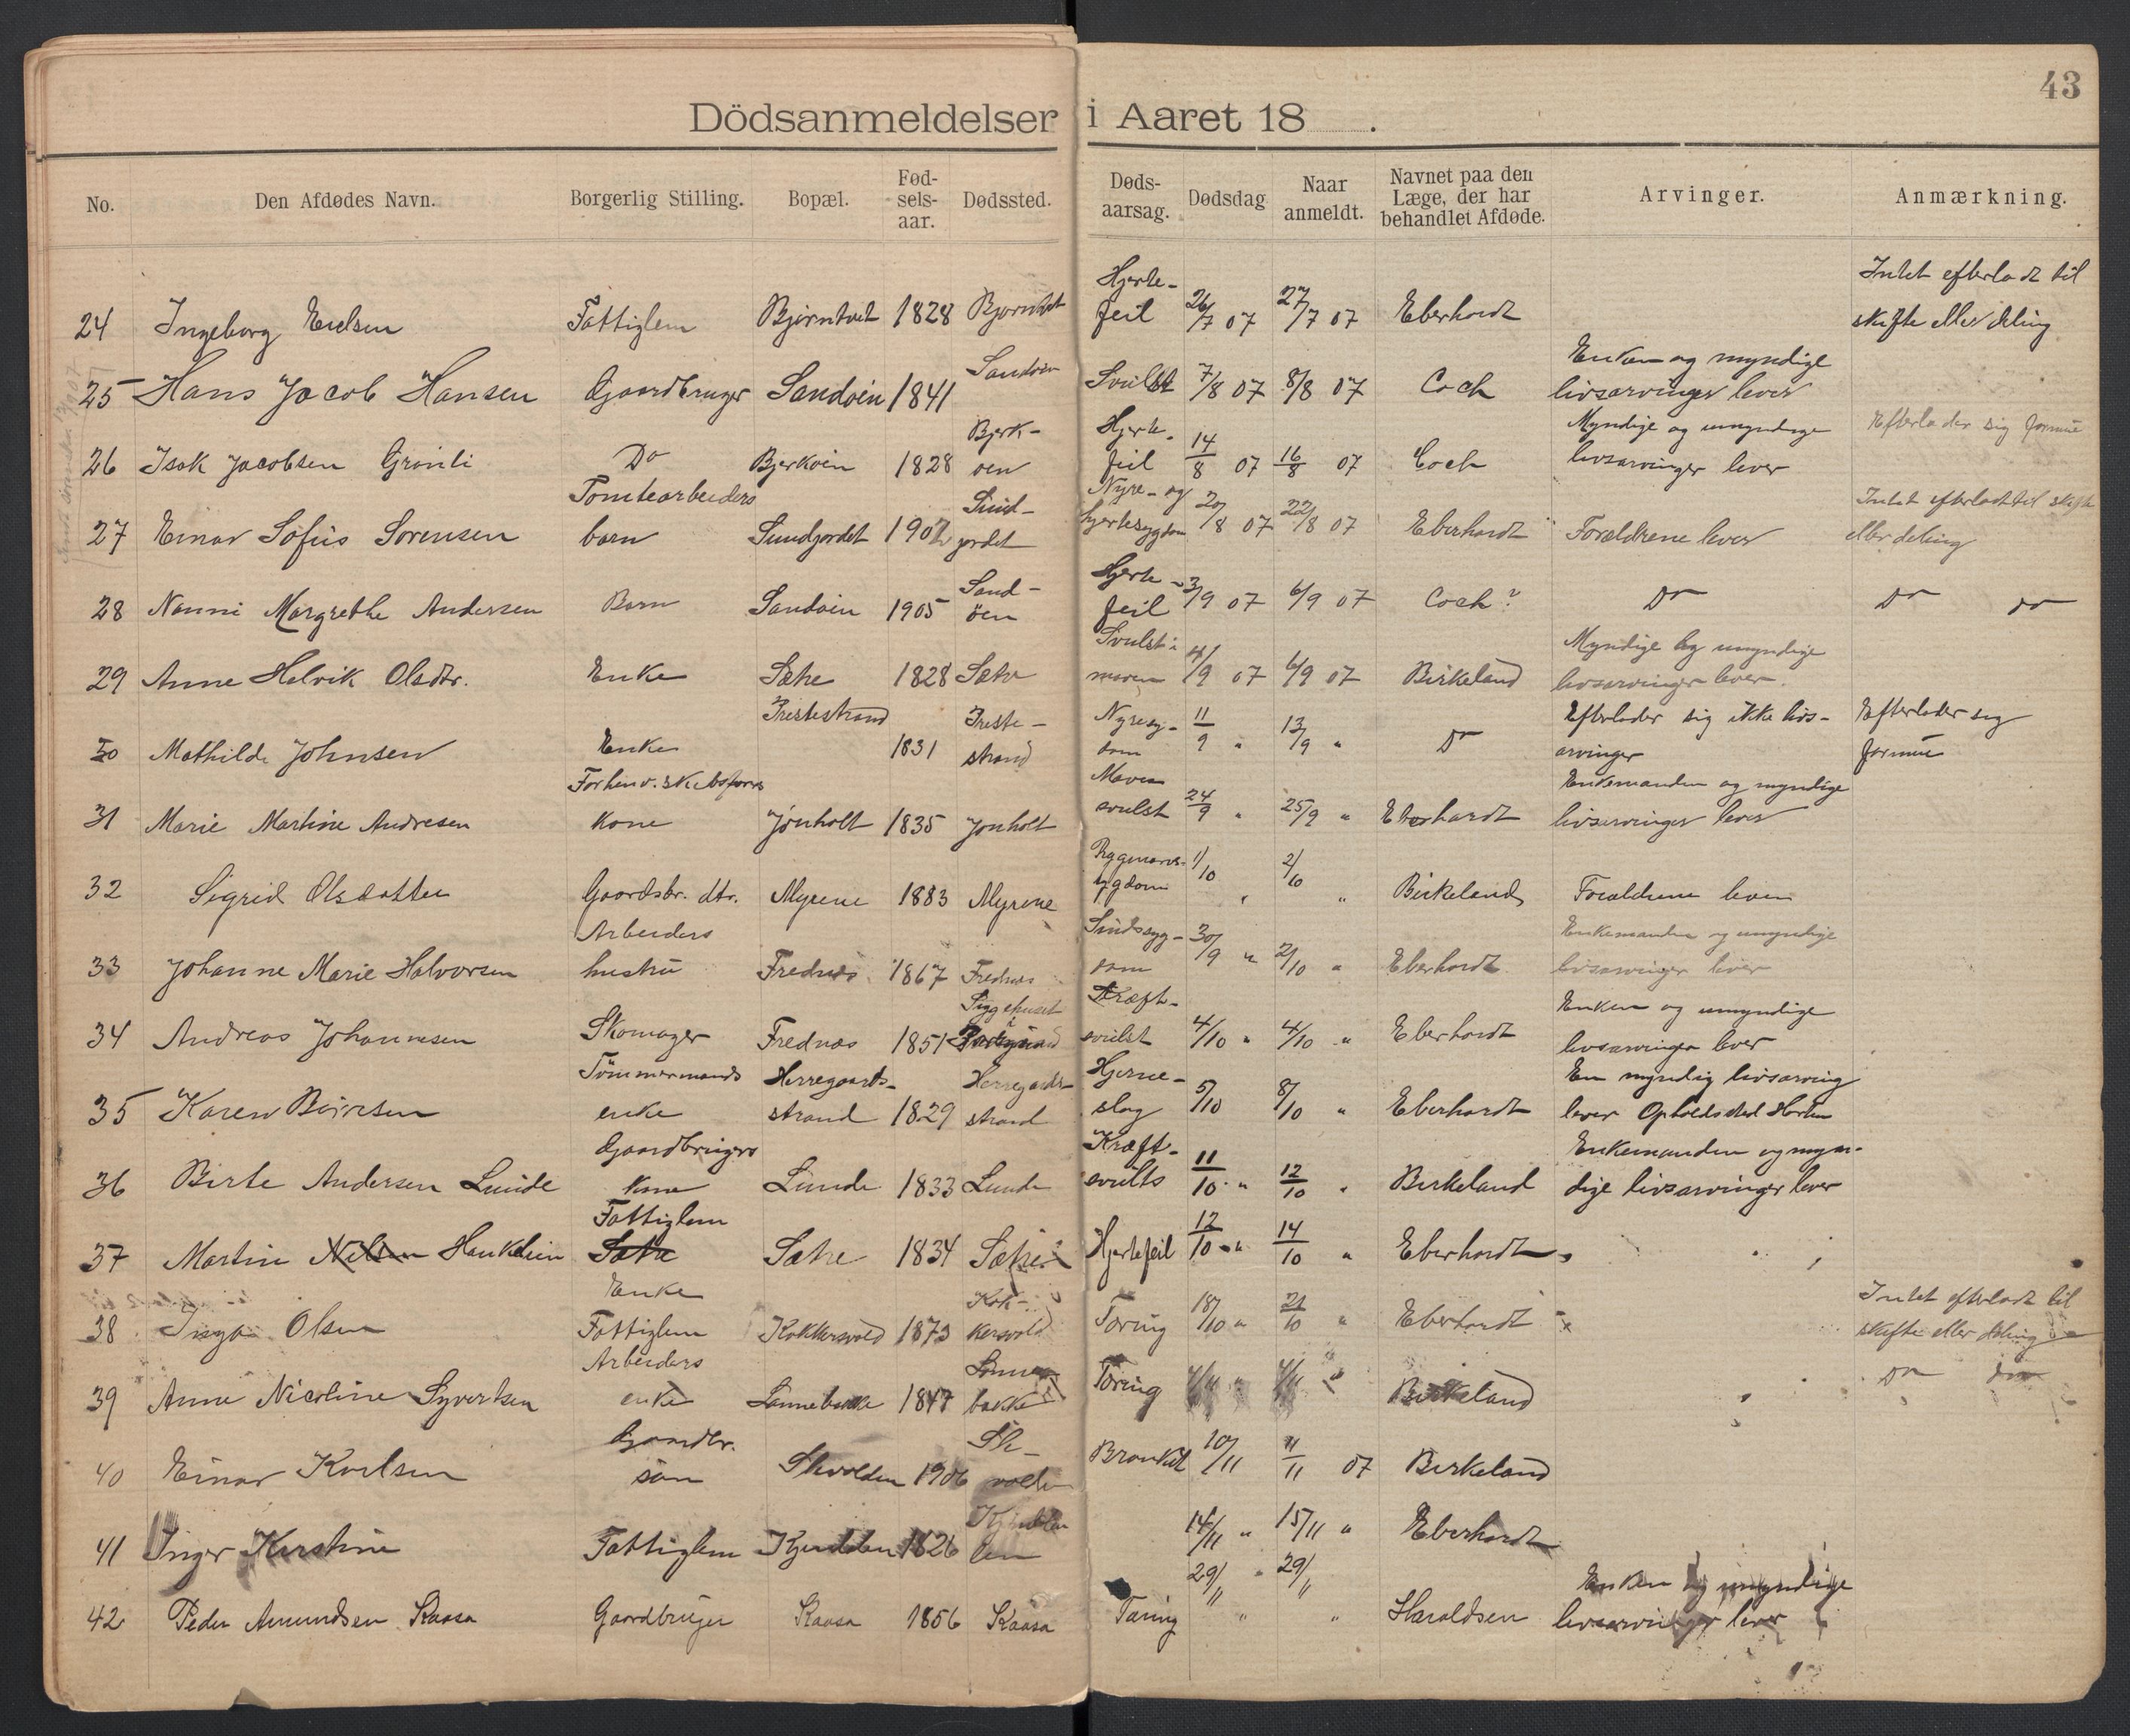 43
Dödsanmeldelser i Aaret 18 .
No. Den Afdødes Navn. Borgerlig Stilling. Bopæl. Fødselsaar. Dødssted. Dødsaarsag. Dødsdag Naar anmeldt. Navnet paa den Læge, der har behandlet Afdøde. Arvinger. Anmærkning.
24 Ingeborg Fattiglem Bjørntvet 1828 Bjørntvet Hjertefeil 26/7 07 27/7 07 Eberhardt Intet efterladt til skifte eller deling
25 Hans Jacob Hansen Gaardbruger Sandøen 1841 Sandøen Svulst 7/8 07 8/8 07 Coch Enken og myndige livsarvinger lever
26 Isak Jacobsen Grønli Do Bjerkøen 1828 Bjerkøen Hjertefeil 14/8 07 16/8 07 Coch Myndige og umyndige livsarvinger lever Efterlader sig formue
27 Einar Sofus Sørensen Tomtearbeiders barn Sundjordet 190 Sundjordet Nyre- og hjertesygdom 20/8 07 22/8 07 Eberhardt Forældrene lever Intet efterladt til skifte eller deling
28 Nanni Margrethe Andersen Barn Sandøen 1905 Sandöen Hjertefeil 3/9 07 6/9 07 Coch? Do Do do
29 Anne Helvik Olsdtr. Enke Sætre 1828 Sætre Svulst i maven 4/9 07 6/9 07 Birkeland Myndige og umyndige livsarvinger lever.
30 Mathilde Johnsen Enke Trestestrand 1831 Trestestrand Nyresygdom 11/9 " 13/9 " Do Efterlader sig ikke livsarvinger Efterlader sig formue
31 Marie Martine Andresen Forhenv. skibsførers kone Jønholt 1835 Jønholt Mavesvulst 24/9 " 25/9 " Eberhardt Enkemanden og myndige livsarvinger lever
32 Sigrid Olsdatter Gaardsbr. dtr. Myrene 1883 Myrene Rygmarvssygdom 1/10 " 2/10 " Birkeland Forældrene lever
33 Johanne Marie Halvorsen Arbeiders hustru Frednæs 1867 Frednæs Sindssygdom 30/9 " 2/10 " Eberhardt Enkemanden og umyndige livsarvinger lever
34 Andreas Johannesen Skomager Frednæs 1851 Sygehuset i Porsgrund Kræftsvulst 4/10 " 4/10 " Eberhardt Enken og umyndige livsarvinger lever
35 Karen Bøiresen Tömmermands enke Herregaardsstrand 1829 Herregaardsstrand Hjerneslag 5/10 8/10 " Eberhardt En myndig livsarving lever Opholdssted Horten
36 Birte Andersen Lunde Gaardbrugers kone Lunde 1833 Lunde Kræftsvults 11/10 " 12/10 " Birkeland Enkemanden og myndige livsarvinger lever
37 Martin Nilsen Haukelien Fattiglem Sætre Sætre 1834 Sætre Hjertefeil 12/10 " 14/10 " Eberhardt
38 Inga Olsen Enke Fattiglem Kokkersvold 1873 Kokkersvold Tæring 18/10 " 21/10 " Eberhardt Intet efterladt til skifte eller deling
39 Anne Nicoline Syvertsen Arbeiders enke Lønnebakke 1847 bakke Tæring Birkeland Do do
40 Einar Karlsen Gaardbr. søn Skvolden 1906 Bronkit 10/11 11/11 07 Birkeland
41 Inger Kirstine Fattiglem 1826 14/11 " 15/11 " Eberhardt
42 Peder Amundsen Kaasa Gaardbruger Kaasa 1856 Kaasa Tæring 29/11 " 29/11 " Haraldsen Enken og umyndige livsarvinger lever